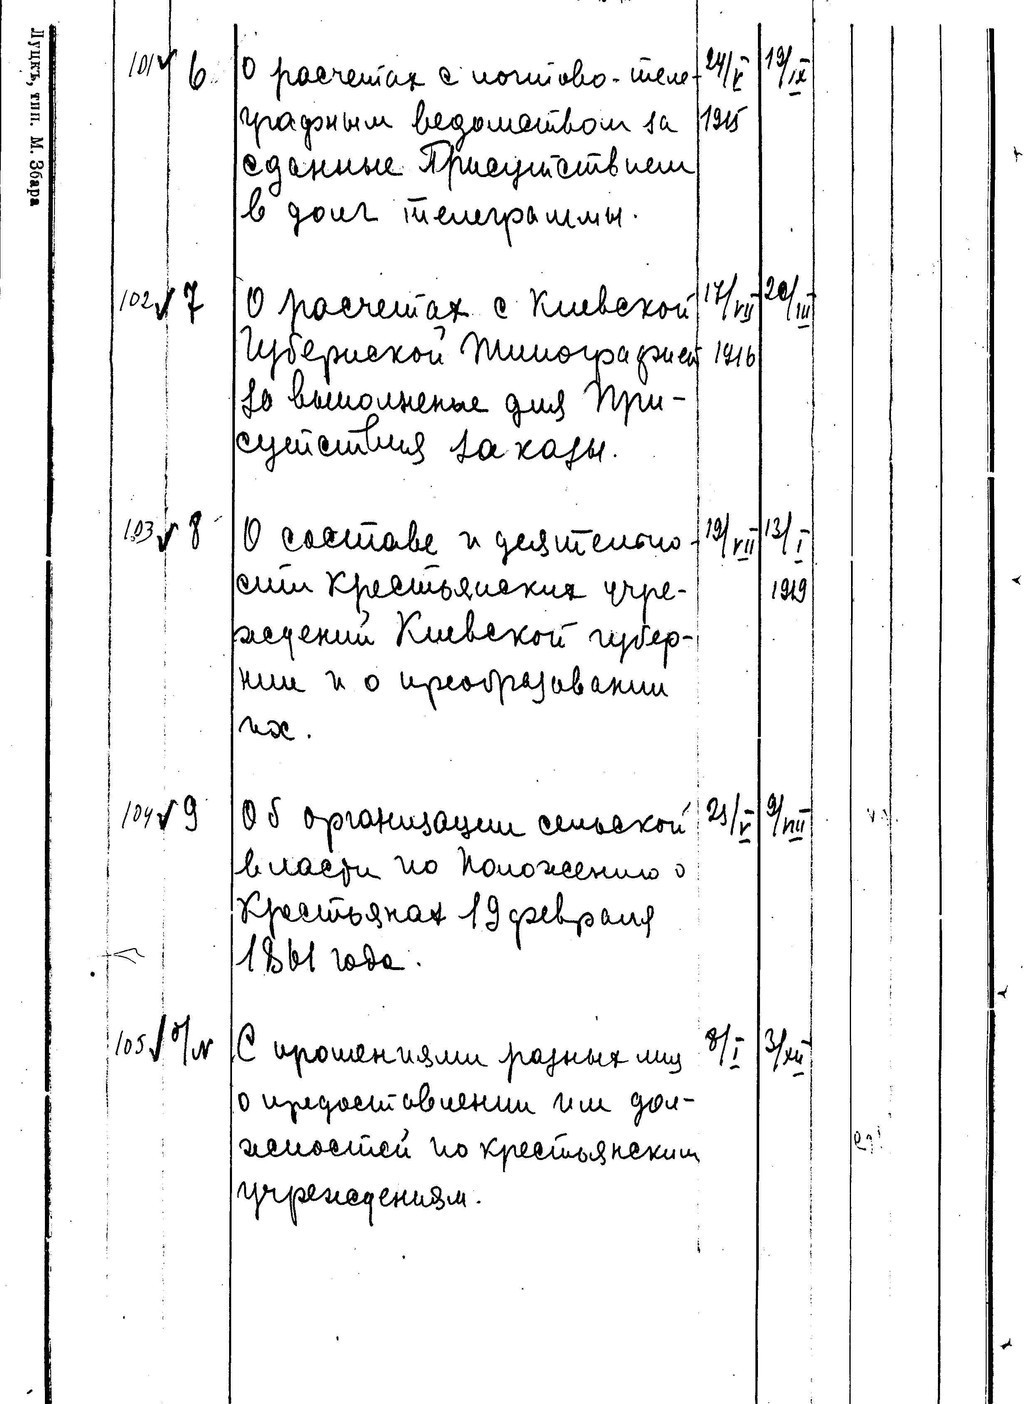 Луцкъ, тип. М. Збара
101 ✓ 6 О расчетах с почтово-теле- 24/V 19/IX
графным ведомством за 1915
сданные Присутствием
в долг телеграммы.
102 ✓ 7 О расчетах с Киевской 17/VII 20/III
Губернской Типографией 1916
за выполненые для При-
сутствия заказы.
103 ✓ 8 О составе и деятельно- 19/VII 13/I
сти крестьянских учре- 1919
ждений Киевской губер-
нии и о преобразовании
их.
104 ✓ 9 Об организации сельской 23/V 9/VIII
власти по Положению о
Крестьянах 19 февраля
1861 года.
105 ✓ б/N С прошениями разных лиц 8/I 3/XII
о предоставлении им дол-
жностей по крестьянским
учреждениям.